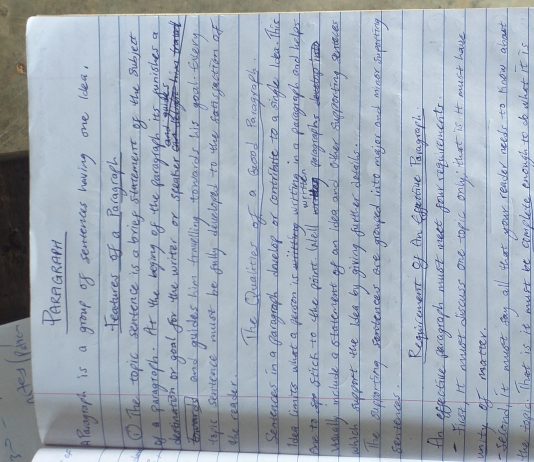 PARAGRAPH
A Paragraph is a group of sentences having one idea.
Features of a Paragraph
① The topic sentence is a brief statement of the subject
of a paragraph. At the beging of the paragraph it punishes a
destination or goal for the writer or speaker and guides
towards and guides him travelling towards his goal. Every
topic sentence must be fully developed to the satisfaction of
the reader.
The Qualities of a Good Paragraph.
Sentences in a paragraph develop or contribute to a single idea. This
idea limits what a person is writting in a paragraph and helps
one to stick to the point. Well written paragraphs
usually include a statement of an idea and other supporting sentences
which support the idea by giving further details.
The supporting sentences are grouped into major and minor supporting
sentences.
Requirement of An Effective Paragraph
An effective paragraph must meet four requirements.
- First, it must discuss one topic only, that is it must have
unity of matter.
- Second it must say all that your reader needs to know about
the topic. That is it must be complete enough to do what it is
notes (